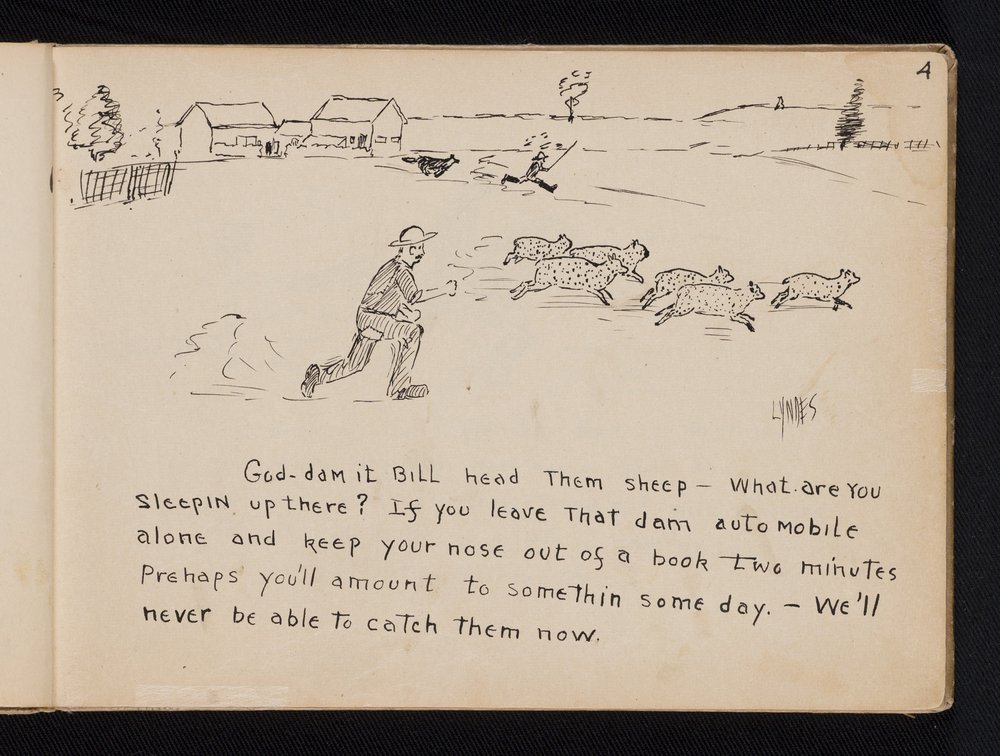 4
LYNDES
God-dam it BILL head Them sheep – What are You
SleepIN up there? If you leave That dam automobile
alone and keep your nose out of a book two minutes
Prehaps you'll amount to somethin some day. – We'll
never be able to catch them now.